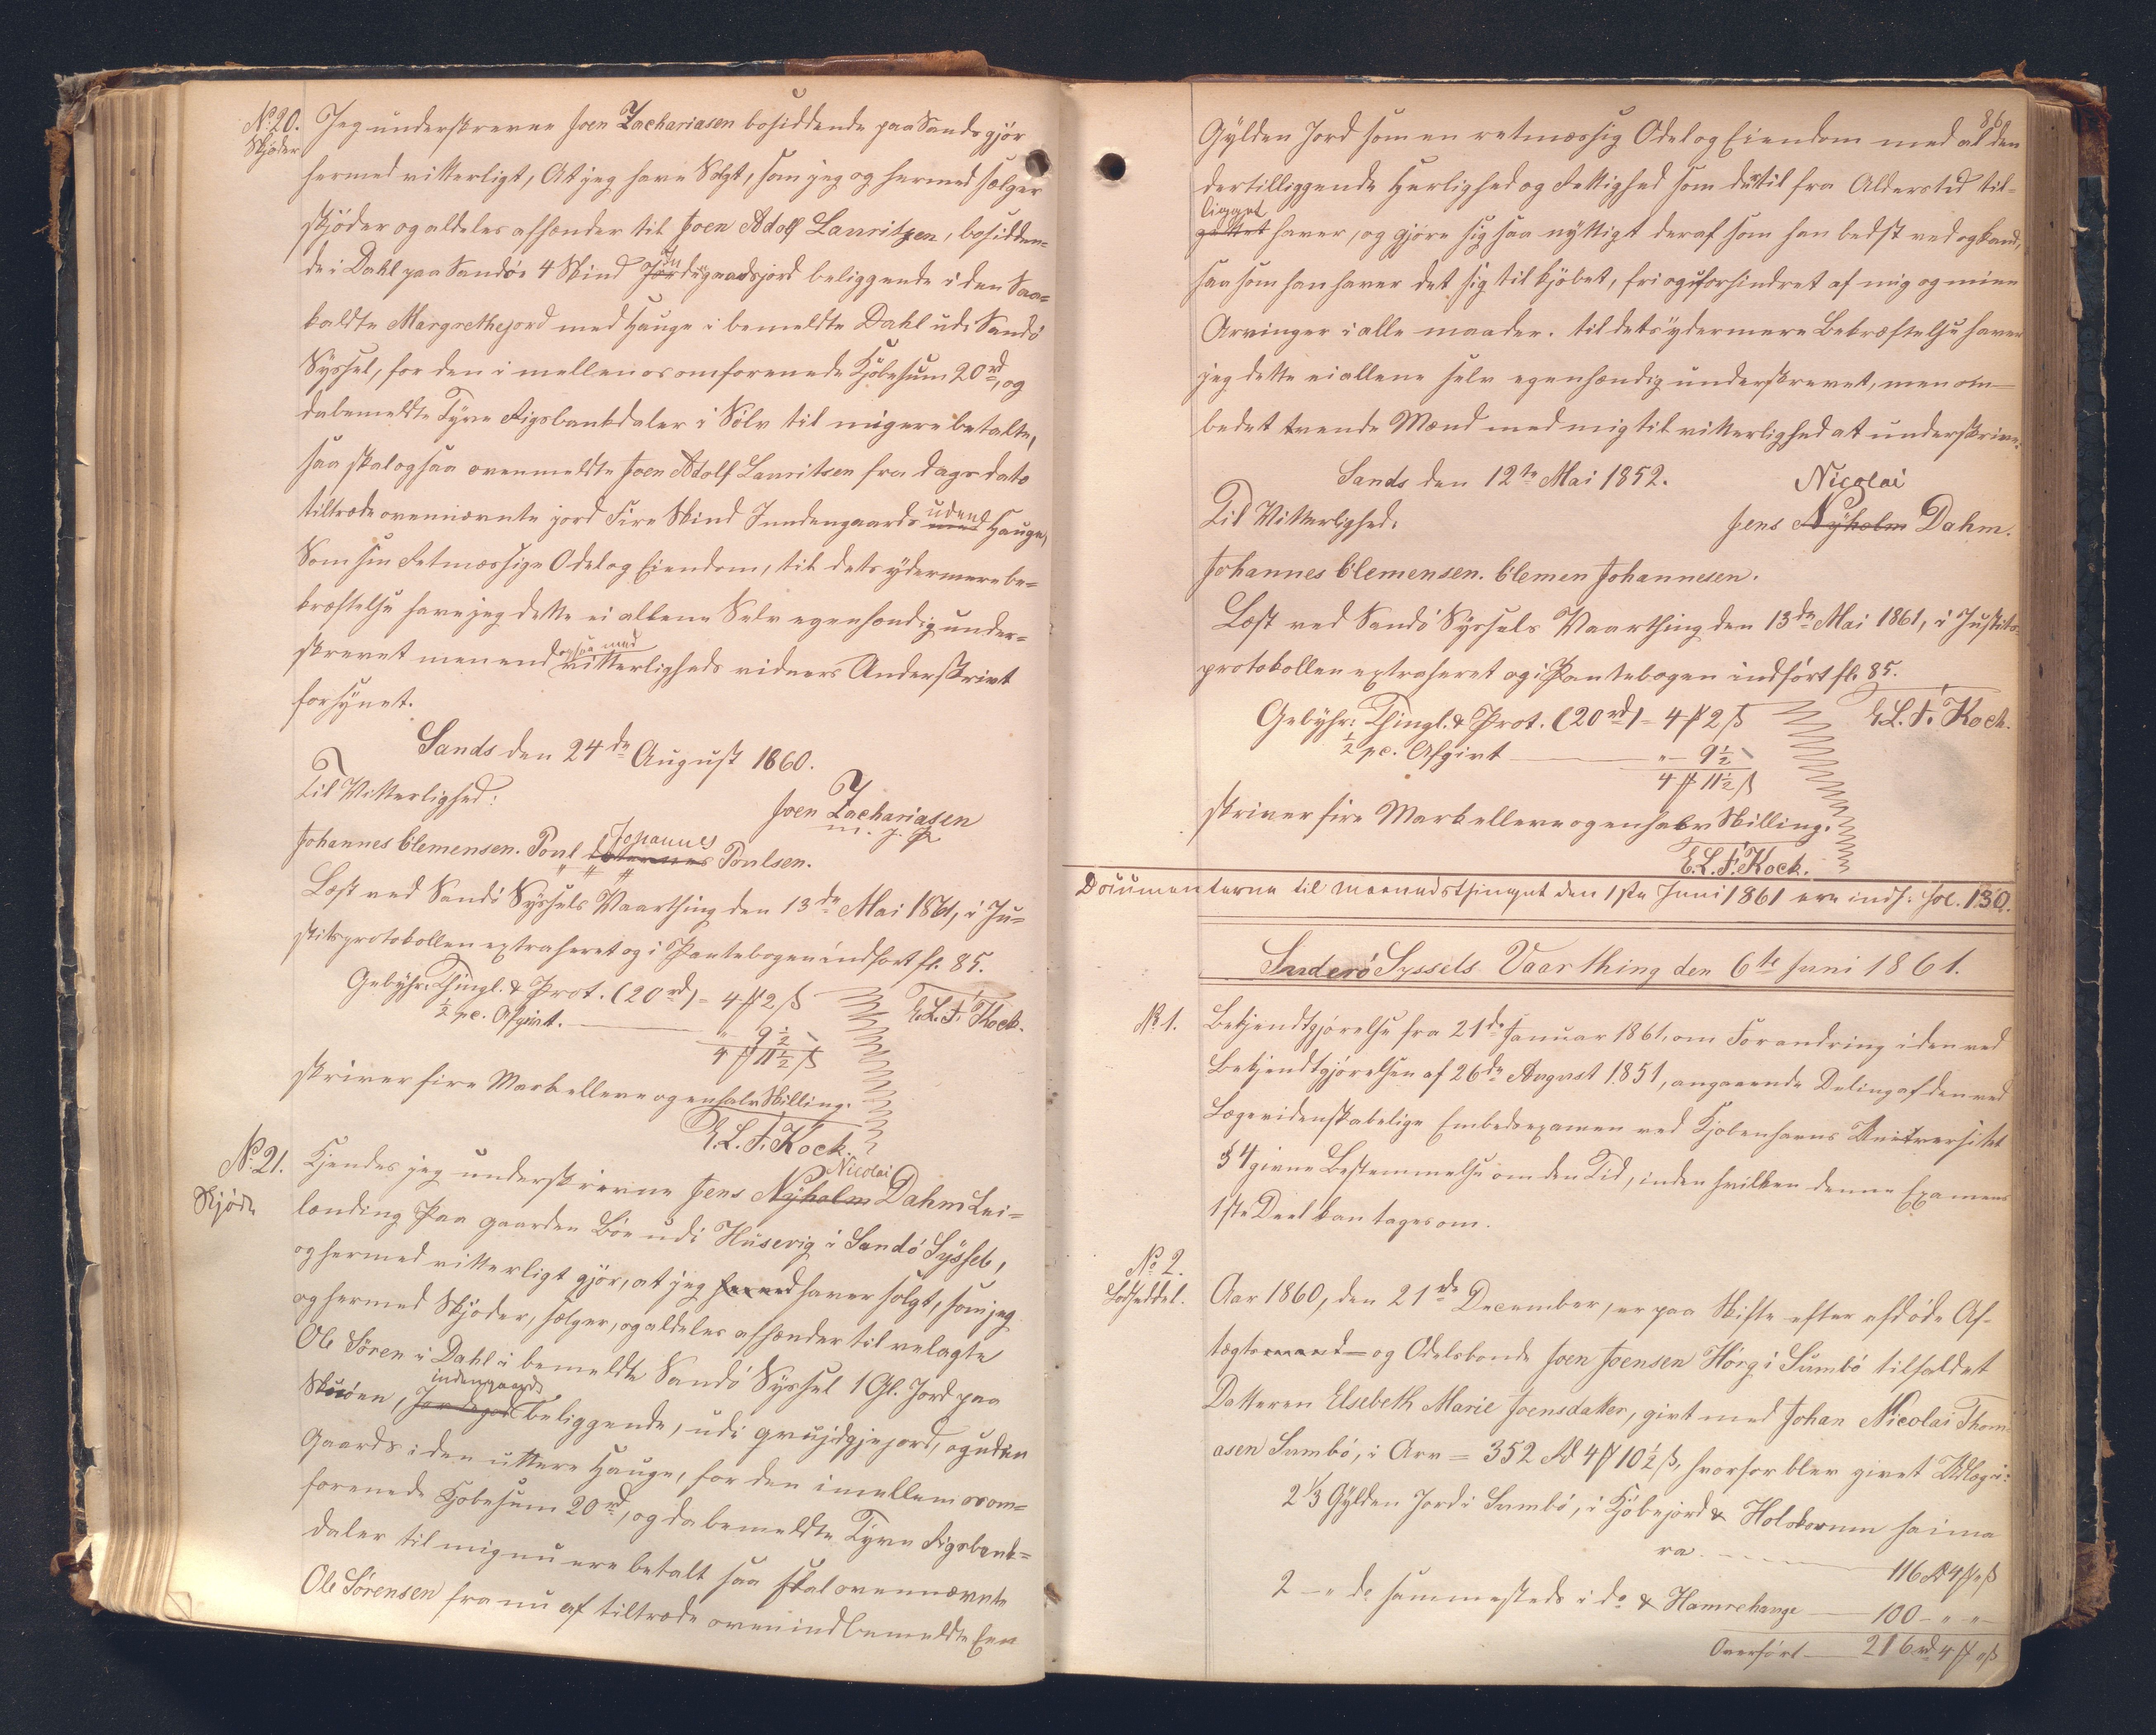 No 20.
Skjøde
Jeg underskrevne Joen Zachariasen bosiddende paa Sands gjør
hermed vitterligt, At jeg have Solgt, som jeg og hermed sælger
skjøder og aldeles afhænder til Joen Adolf Lauritzen, bosidden-
de i Dahl paa Sandöe 4 Skind Jordegaardsjord beliggende i den Saa-
kaldte Margrethejord med Hauge i bemeldte Dahl udi Sandö
Syssel, for den i mellem os omforenede Kjöbesum 20 rd, og
da bemeldte Tyve Rigsbankdaler i Sölv til mig ere betalte,
saa skal ogsaa ovenmeldte Joen Adolf Lauritsen fra Dags dato
tiltræde ovennævnte jord Fire Skind Inndengaards med udend Hauge,
Som sin Retmæssige Odel og Eiendom, til dets ydermere be-
kræftelse have jeg dette ei allene Selv egenhændig under-
skrevet men end ogsaa med vitterligheds vidners Underskrivt
forsynet.
Sands den 24de August 1860.
Til Vitterlighed:
Joen Zachariasen
m. f. P.
Johannes Clemensen. Poul Johannes Poulsen.
Læst ved Sandö Syssels Vaarthing den 13de Mai 1861, i Ju-
stitsprotokollen extraheret og i Pantebogen indfört fl. 85.
Gebyhr: Thingl. & Prot. (20 rd) = 4 ℔ 2 ß
E.L.F. Kock.
½ pc. Afgivt. " 9½ -
4 ℔ 11½ ß
skriver fire Mark elleve og en halv Skilling.
E.L.F. Kock.
No 21.
Skjøde
Kjendes jeg underskrevne Jens Nyholm Nicolai Dahm Lei-
lænding Paa gaarden Böe udi Husevig i Sandö Syssel,
og hermed vitterligt gjør, at jeg haver solgt, som jeg
og hermed Skjøder, sælger, og aldeles afhænder til velagte
Ole Sören i Dahl i bemeldte Sandö Syssel 1 Gl. Jord paa
Skuöen, indengaards beliggende, udi gruidgjejord, og uden
Gaards i den uttere Hauge, for den imellem os om-
forenede Kjöbesum 20 rd, og da bemeldte Tyve Rigsbank-
daler til mig nu ere betalt saa skal ovennævnte
Ole Sörensen fra nu af tiltræde ovenindbemeldte Een
86
Gylden Jord som en retmæssig Odel og Eiendom med al den
dertilliggende Herlighed og Rettighed som dertil fra Alderstid til-
ligget haver, og gjøre sig saa nyttigt deraf som han bedst ved og kand,
saasom han haver det sig til kjöbet, fri og uforhindret af mig og mine
Arvinger i alle maader. til dets ydermere Bekræftelse haver
jeg dette ei allene selv egenhændig underskrevet, men om-
bedet tvende Mænd med mig til vitterlighed at underskrive.
Sands den 12te Mai 1852.
Nicolai
Til Vitterlighed:
Jens Nyholm Dahm.
Johannes Clemensen. Clemen Johannesen.
Læst ved Sandö Syssels Vaarthing den 13de Mai 1861, i Justits-
protokollen extraheret og i Pantebogen indfört fl. 85.
Gebyhr: Thingl. & Prot. (20 rd) = 4 ℔ 2 ß
E.L.F. Kock.
½ pc. Afgivt " 9½ -
4 ℔ 11½ ß
skriver fire Mark elleve og en halv Skilling.
E.L.F. Kock.
Documenterne til maanedsthinget den 1ste Juni 1861 ere indf: fol. 130.
Suderö Syssels Vaarthing den 6te Juni 1861.
No 1.
Bekjendtgjørelse fra 21de Januar 1861, om Forandring i den ved
Bekjendtgjørelsen af 26de August 1851, angaaende Deling af den ved
Lægevidenskabelige Embedsexamen ved Kjøbenhavns Universitet
§ 4 givne Bestemmelse om den Tid, inden hvilken denne Examens
1ste Deel kan tages om.
No 2.
Lodseddel.
Aar 1860, den 21de December, er paa Skifte efter afdøde Af-
tægtsmand og Odelsbonde Joen Joensen Hörg i Sumbö tilfaldet
Datteren Elsebeth Marie Joensdatter, givt med Johan Nicolai Thom-
asen Sumbö, i Arv = 352 Rd 4 ℔ 10½ ß, hvorfor blev givet Udlæg i:
2⅓ Gylden Jord i Sumbö, i Kjöbejord & Holskovnum haima
ra 116 Rd 4 ℔ " ß
2 - " do sammesteds i do & Hamrehauge 100 - " "
Overfört 216 rd 4 ℔ " ß